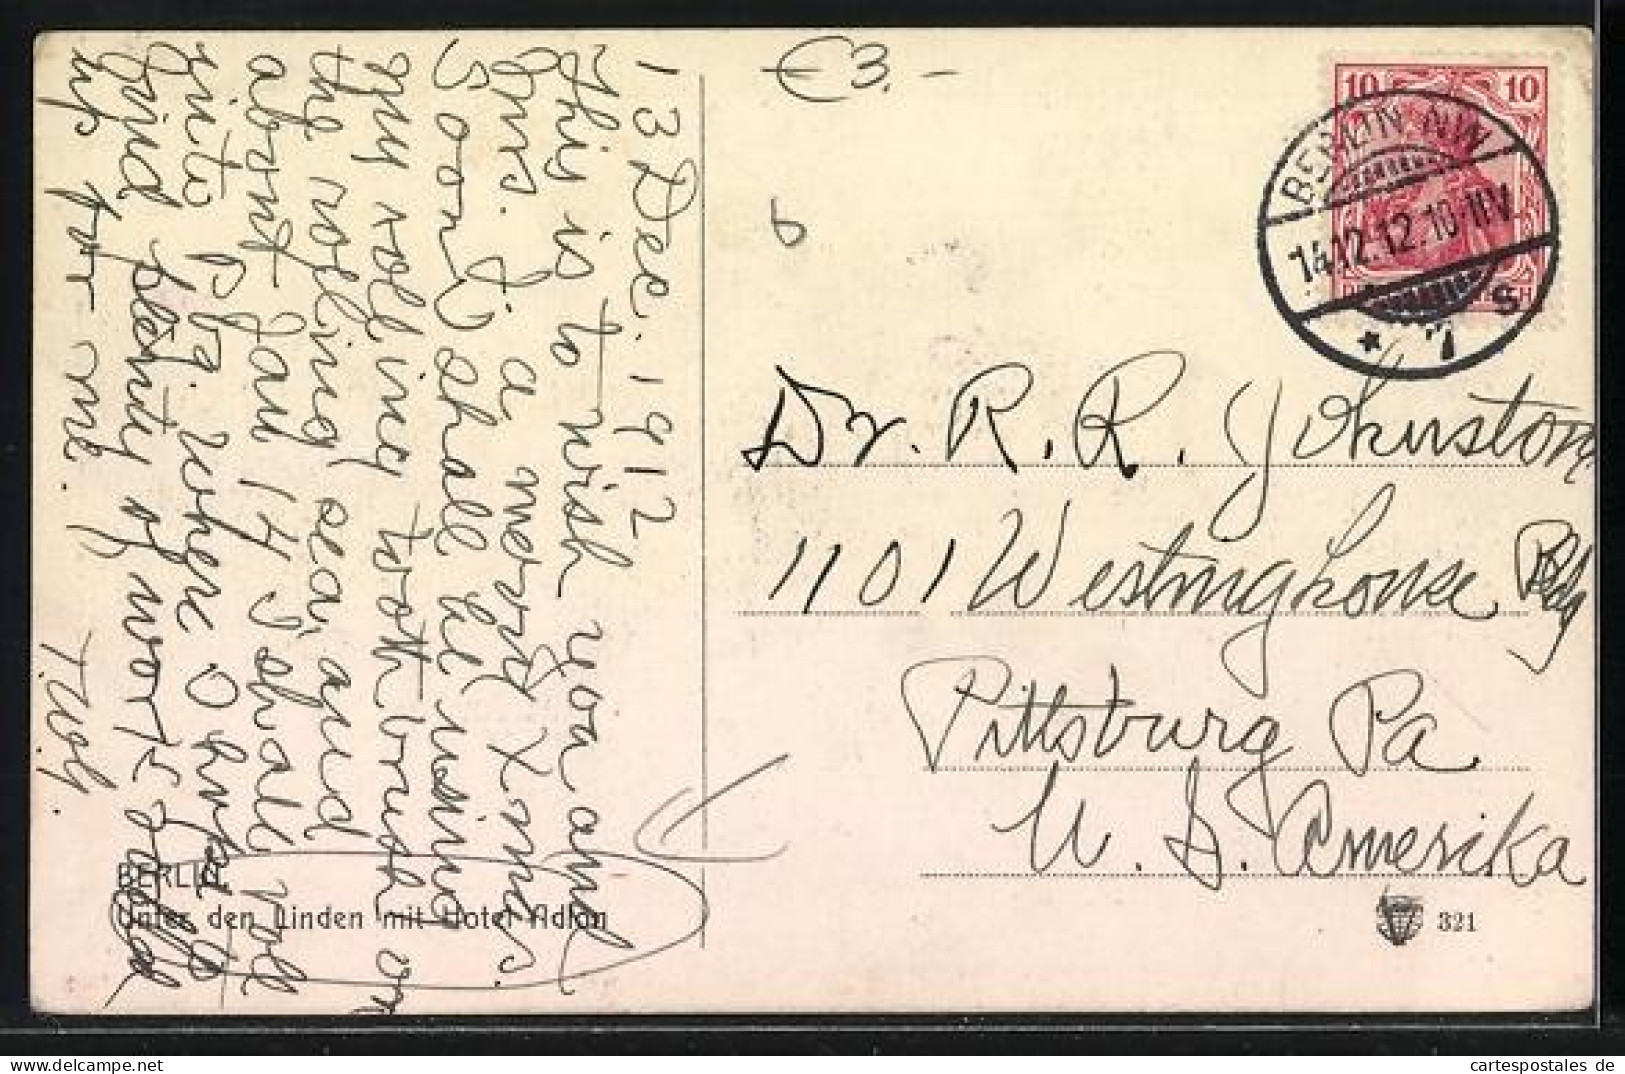 13 Dec. 1912
This is to wish you and
yours. a merry Xmas.
Soon I shall be using
my rolling tooth brush on
the rolling sea, and
about Jan 14 I shall roll
into Pbg. where I hope
find plenty of work
up for me.
T.W.
€3.-
b
10 10
BERLIN NW
14.12.12.10-11V.
* 7 s
Dr. R. R. Johnston
1101 Westinghouse Bldg
Pittsburg Pa
U. S. Amerika
BERLIN
Unter den Linden mit Hotel Adlon
321
cartespostales de